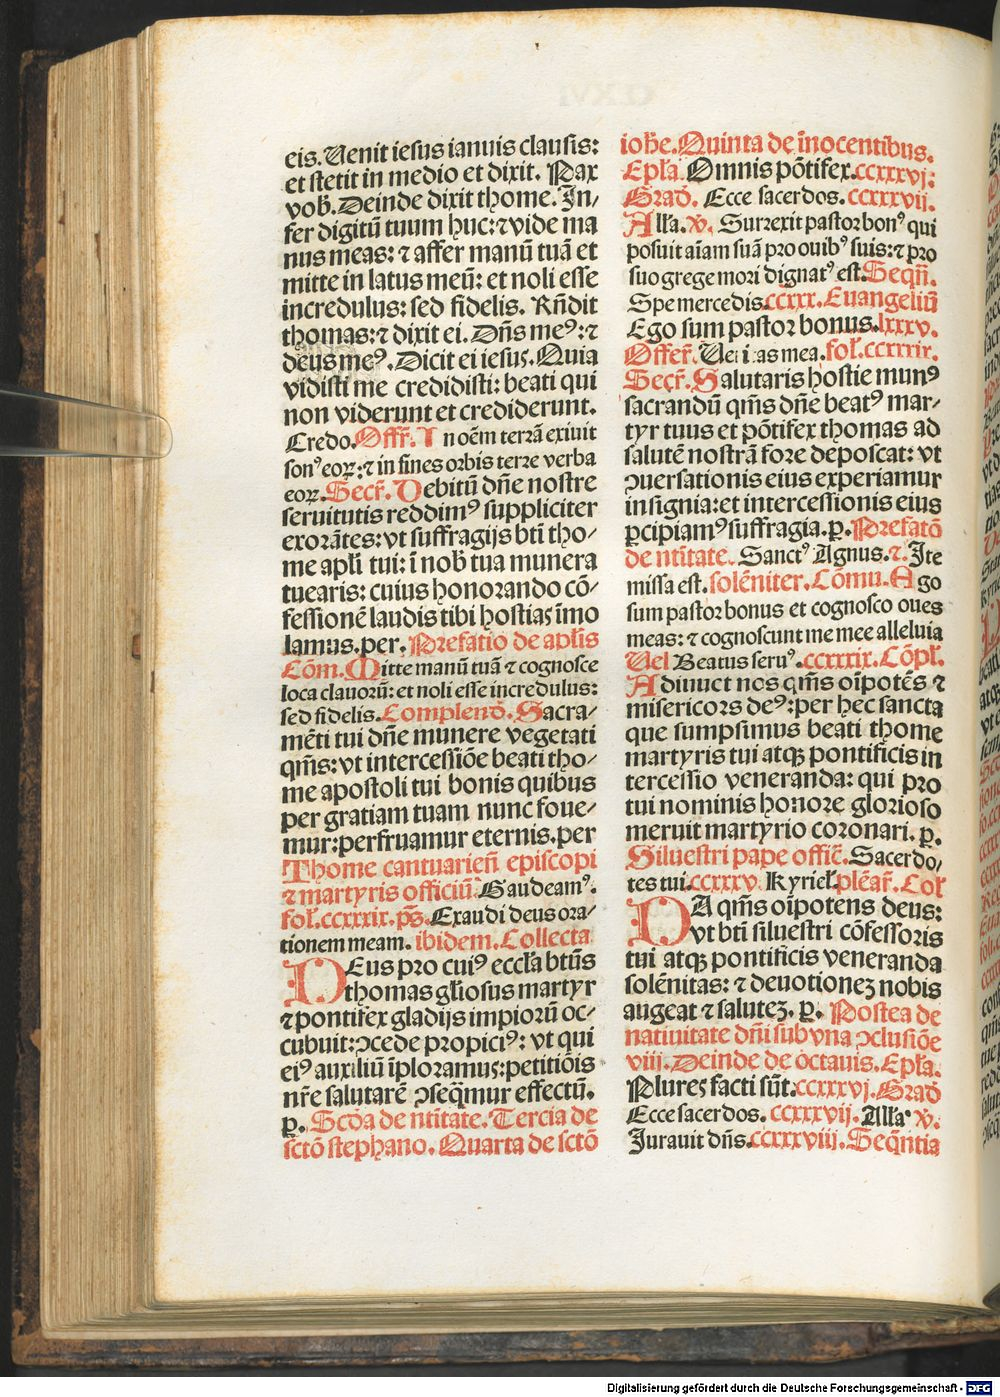 eis. Uenit iesus ianuis clausis:
et stetit in medio et dixit. Pax
vob̄. Deinde dixit thome. In-
fer digitū tuum huc: ⁊ vide ma
nus meas: ⁊ affer manū tuā et
mitte in latus meū: et noli esse
incredulus: sed fidelis. Rn̄dit
thomas: ⁊ dixit ei. Dn̄s meꝰ: ⁊
deus meꝰ. Dicit ei iesus. Quia
vidisti me credidisti: beati qui
non viderunt et crediderunt.
Credo. Offr̄. In oēm terrā exiuit
sonꝰ eoꝝ: ⁊ in fines orbis terre verba
eoꝝ. Secr̄. Debitū dn̄e nostre
seruitutis reddimꝰ suppliciter
exorātes: vt suffragijs bt̄i tho-
me apl̄i tui: ī nob̄ tua munera
tuearis: cuius honorando cō-
fessionē laudis tibi hostias īmo
lamus. per. Prefatio de apl̄is
Cōm. Mitte manū tuā ⁊ cognosce
loca clauorū: et noli esse incredulus:
sed fidelis. Complend̄. Sacra-
mēti tui dn̄e munere vegetati
qm̄s: vt intercessiōe beati tho-
me apostoli tui bonis quibus
per gratiam tuam nunc foue-
mur: perfruamur eternis. per
Thome cantuarien̄ episcopi
⁊ martyris officiū. Gaudeamꝰ.
fol. ccxxxix. ps̄. Exaudi deus ora-
tionem meam. ibidem. Collecta
DEus pro cuiꝰ eccl̄a bt̄us
thomas gl̄iosus martyr
⁊ pontifex gladijs impiorū oc-
cubuit: ꝯcede propiciꝰ: vt qui
eiꝰ auxiliū īploramus: petitiōis
nr̄e salutarē ꝯseq̄mur effectū.
ꝑ. Scd̄a de nt̄itate. Tercia de
sctō stephano. Quarta de sctō
ioh̄e. Quinta de īnocentibus.
Epl̄a. Omnis pōtifex. ccxxxvj:
Grad̄. Ecce sacerdos. ccxxxvij.
All̄a. ℣. Surrexit pastor bonꝰ qui
posuit aīam suā pro ouibꝰ suis: ⁊ pro
suo grege mori dignatꝰ est. Seqn̄.
Spe mercedis. ccxxx. Euangeliū
Ego sum pastor bonus. lxxxv.
Offer̄. Ueritas mea. fol. ccxxxix.
Secr̄. Salutaris hostie munꝰ
sacrandū qm̄s dn̄e beatꝰ mar-
tyr tuus et pōtifex thomas ad
salutē nostrā fore deposcat: vt
ꝯuersationis eius experiamur
insignia: et intercessionis eius
ꝑcipiamꝰ suffragia. ꝑ. Prefatō
de nt̄itate. Sanctꝰ Agnus. ⁊. Ite
missa est. solēniter. Cōmu. Ego
sum pastor bonus et cognosco oues
meas: ⁊ cognoscunt me mee alleluia
Uel Beatus seruꝰ. ccxxxix. Cōpl̄.
Adiuuct nos qm̄s oīpotēs ⁊
misericors deꝰ: per hec sancta
que sumpsimus beati thome
martyris tui atqꝫ pontificis in
tercessio veneranda: qui pro
tui nominis honore glorioso
meruit martyrio coronari. ꝑ.
Siluestri pape offic̄. Sacerdo-
tes tui. ccxxxv. Kyriel̄. plēar̄. Col̄
DA qm̄s oīpotens deus:
vt bt̄i siluestri cōfessoris
tui atqꝫ pontificis veneranda
solēnitas: ⁊ deuotionez nobis
augeat ⁊ salutez. ꝑ. Postea de
natiuitate dn̄i sub vna ꝯclusiōe
viii. Deinde de octauis. Epl̄a.
Plures facti sūt. ccxxxvj. Grad̄
Ecce sacerdos. ccxxxvij. All̄a ℣.
Jurauit dn̄s. ccxxxviij. Seqn̄tia
Digitalisierung gefördert durch die Deutsche Forschungsgemeinschaft - DFG